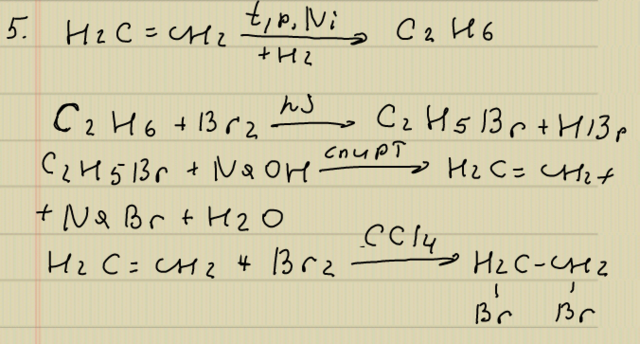 5. H2C = CH2 t, p, Ni +H2 → C2H6
C2H6 + Br2 hν → C2H5Br + HBr
C2H5Br + NaOH спирт → H2C = CH2 +
+ NaBr + H2O
H2C = CH2 + Br2 CCl4 → H2C - CH2
Br Br